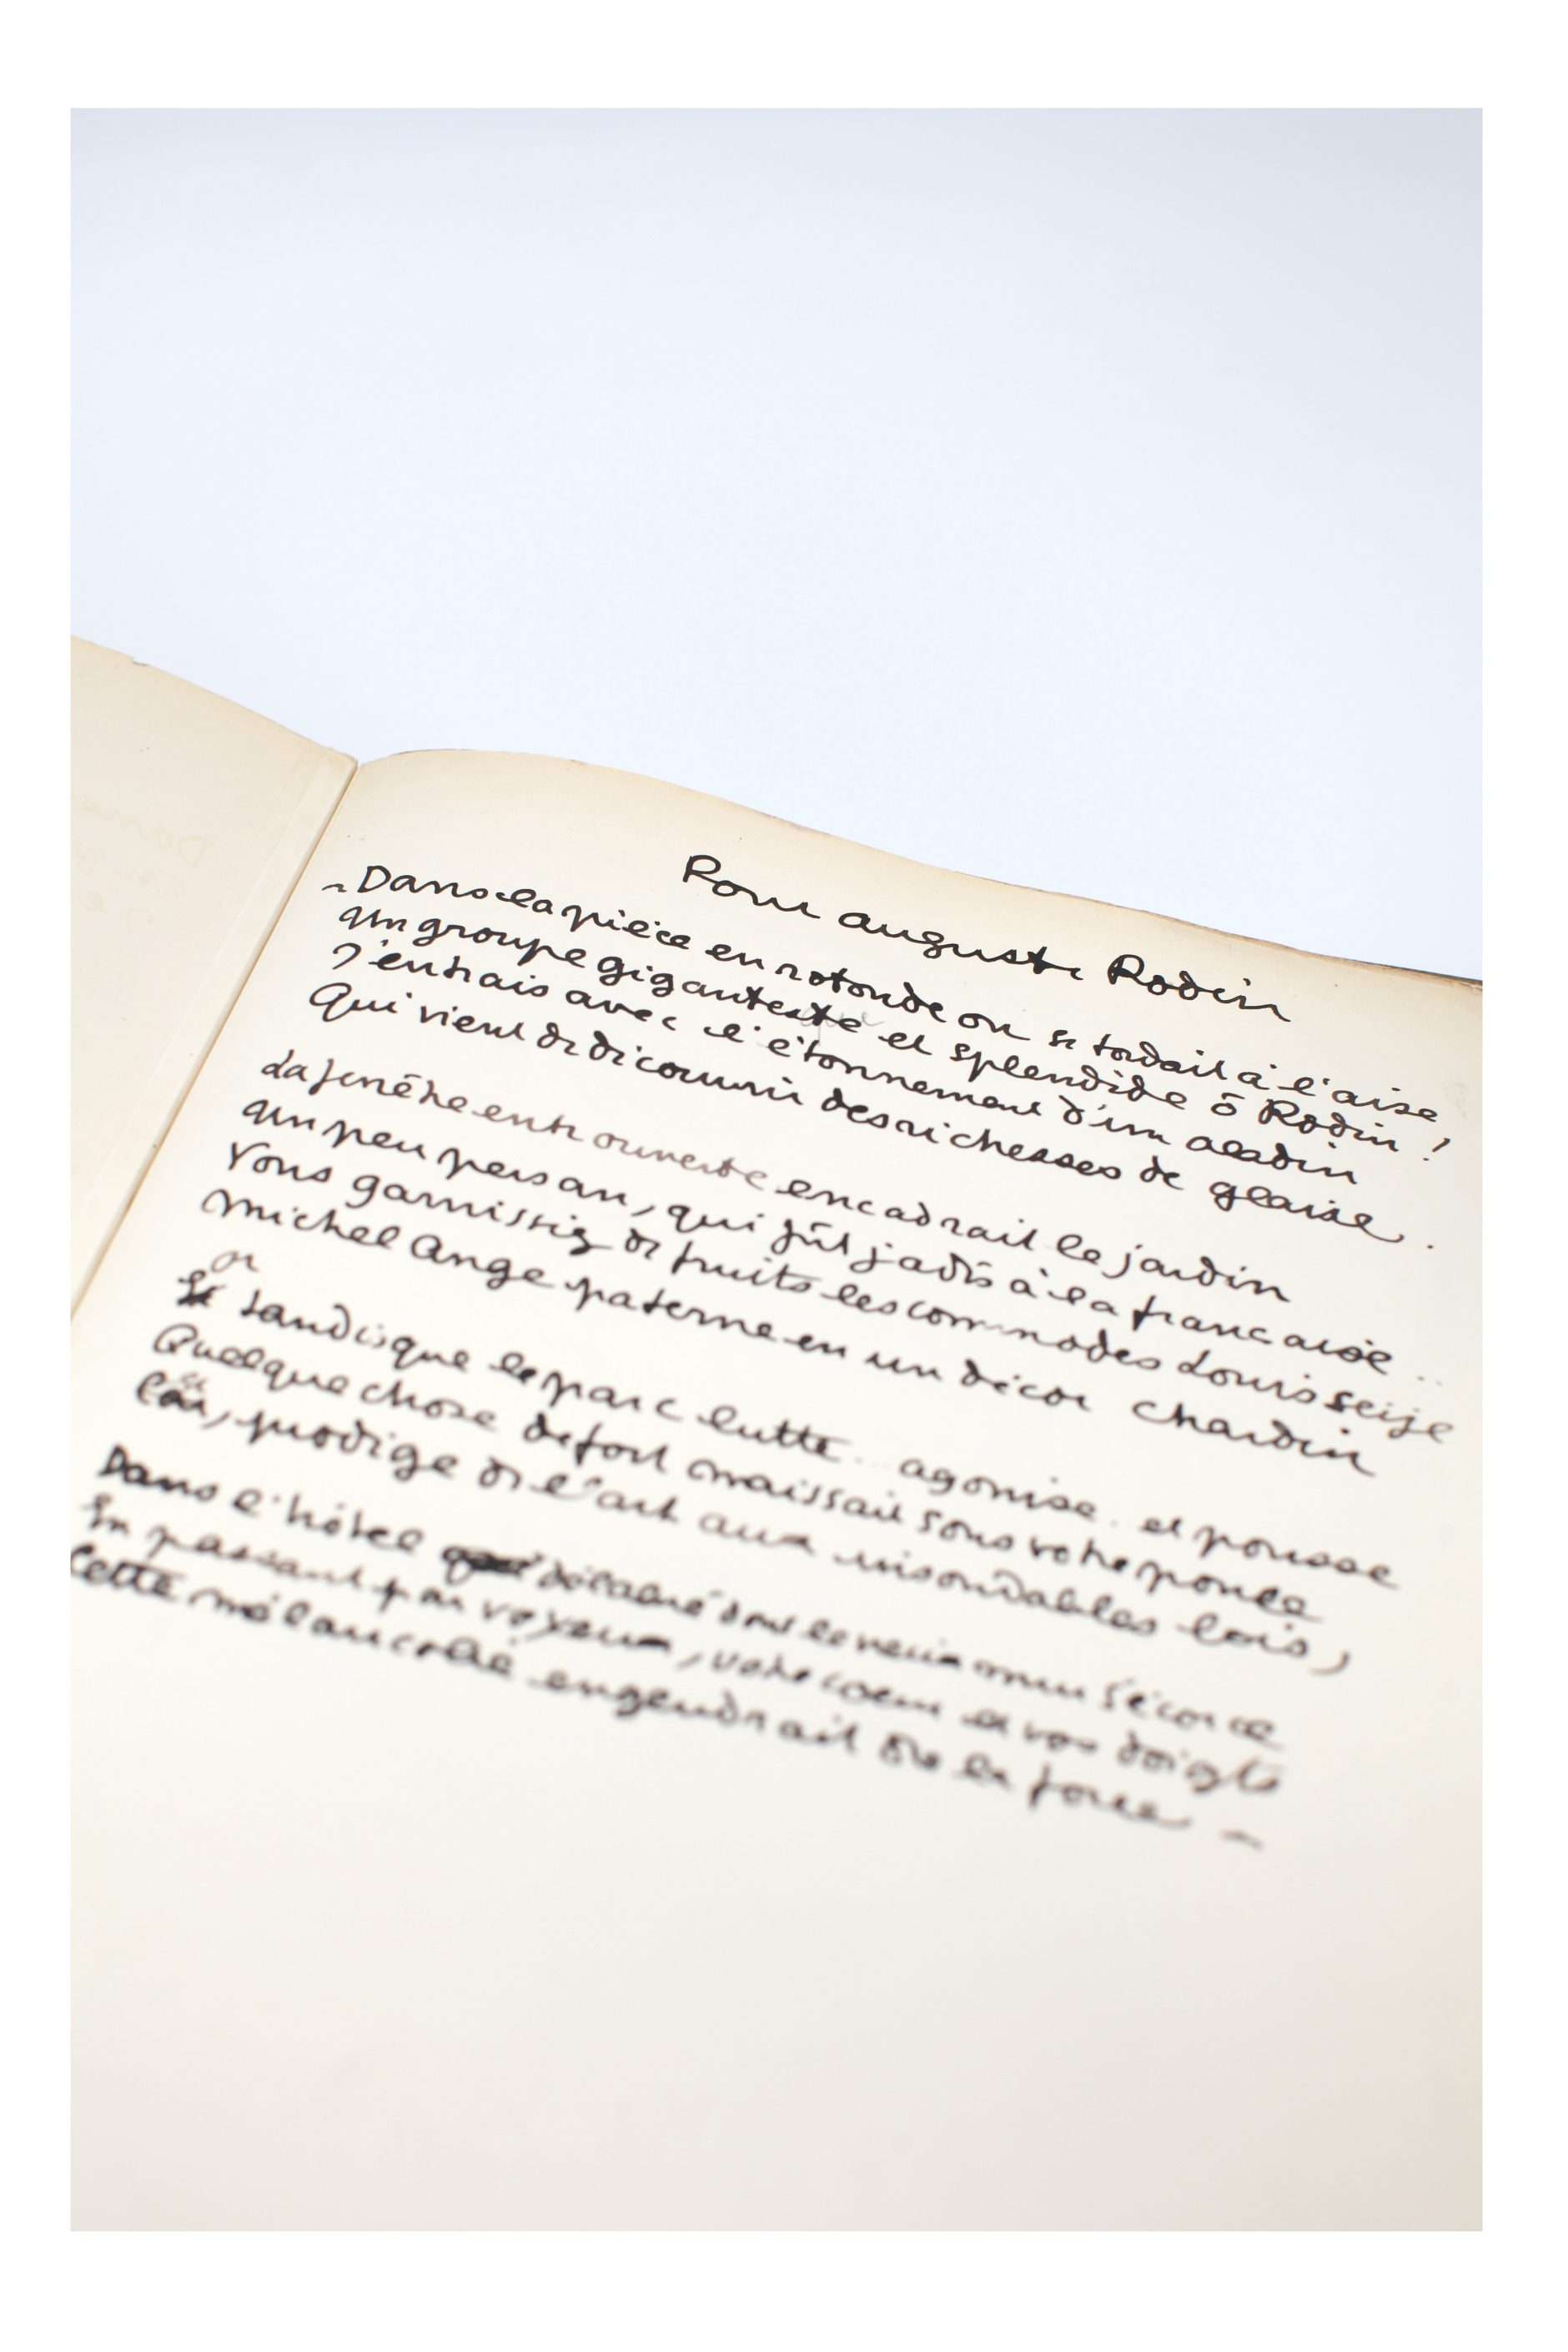 Pour auguste Rodin
Dans la pièce en rotonde ou se tordait à l'aise,
un groupe gigantesque et splendide ô Rodin !
J'entrais avec l'étonnement d'un aladin
Qui vient de découvrir des richesses de glaise.
La fenêtre entrouverte encadrait le jardin
un peu persan, qui fût jadis à la francaise ..
Vous garnissiez de fruits les commodes Louis seize
Michel Ange paterne en un décor Chardin
or
tandis que le parc lutte.. agonise. et pousse
Quelque chose de fort naissait sous votre pouce
prodige de l'art aux insondables lois,
Dans l'hôtel délabré dont le vieux mur s'écorce
En passant par vos yeux, votre coeur et vos doigts
Cette mélancolie engendrait de la force -